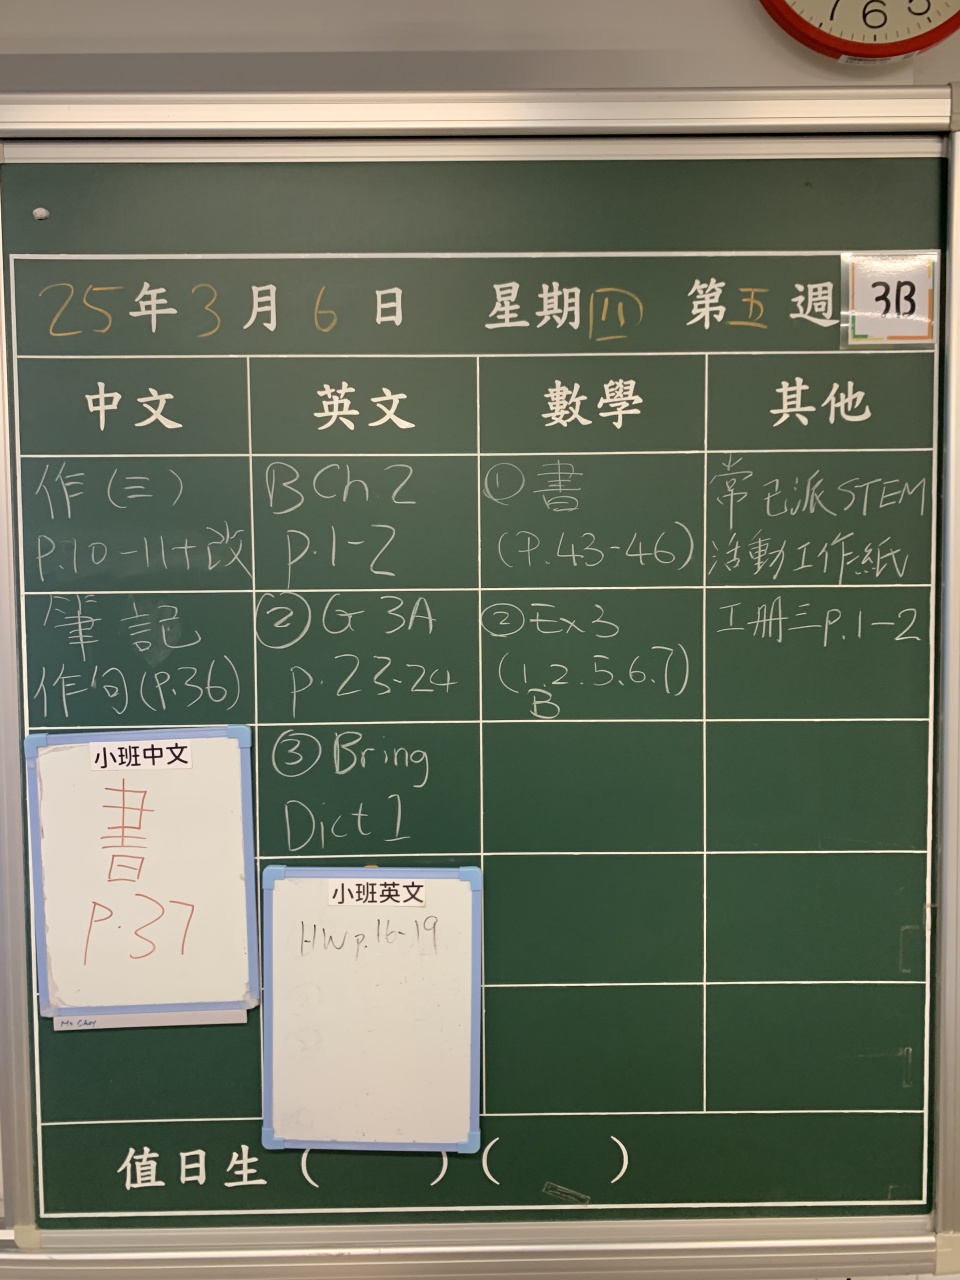 7 6 5
25年3月6日 星期四 第五週 3B
中文 英文 數學 其他
作(三)
p.10-11+改
筆記
作句(p.36)
小班中文
書
p.37
Ms Choy
BCh.2
p.1-2
②G 3A
p.23-24
③Bring
Dict 1
小班英文
HW p.16-19
①書
(P.43-46)
②Ex3
(1.2.5、6.7)
B
常已派STEM
活動工作紙
工册三p.1-2
值日生( )( )